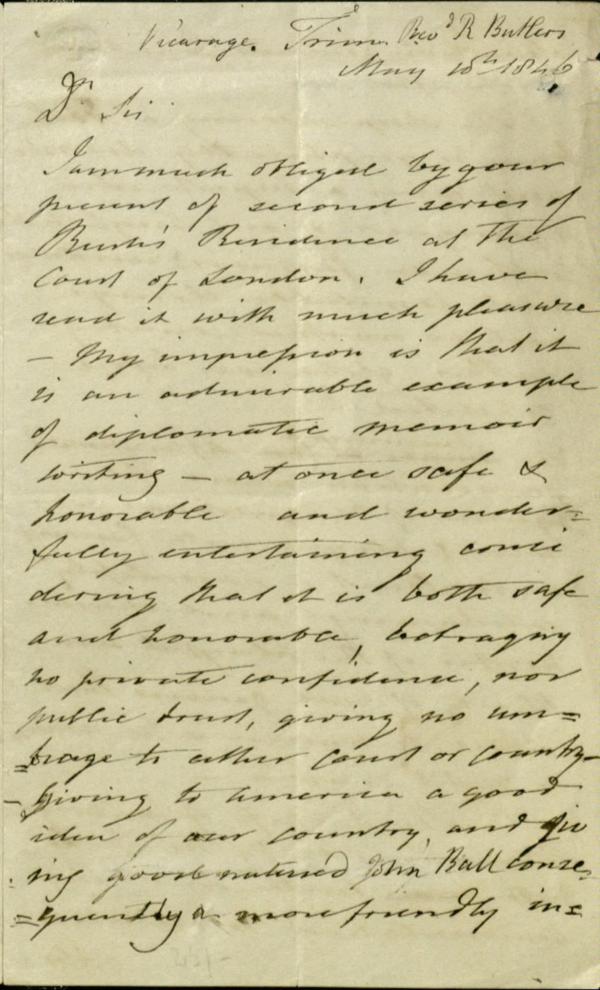 Vicarage. Trim. Revd R Butlers
May 10th 1846
Dr Sir
I am much obliged by your
present of second series of
Rush's Residence at the
Court of London. I have
read it with much pleasure
– My impression is that it
is an admirable example
of diplomatic memoir
writing – at once safe &
honorable and wonder=
fully entertaining consi
dering that it is both safe
and honorable, betraying
no private confidence, nor
public trust, giving no um=
=brage to either court or country–
– Giving to America a good
idea of our country, and giv
ing good natured John Bull conse=
=quently a more friendly in=